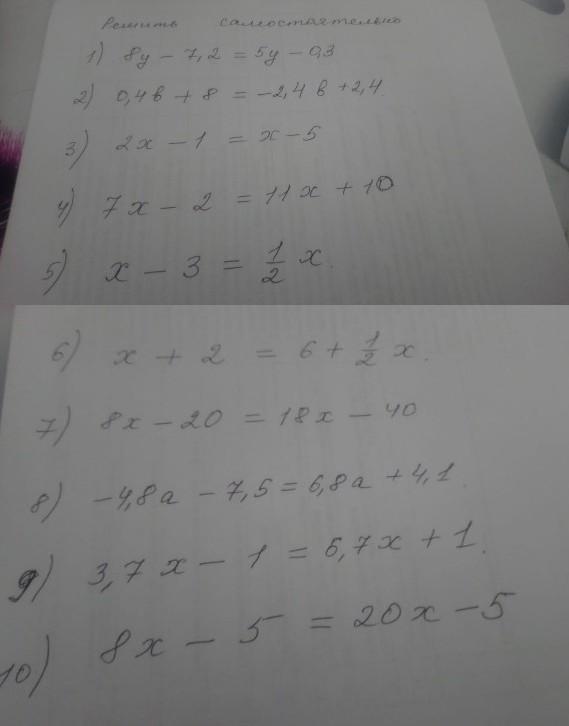 Решить самостоятельно
1) 8y - 7,2 = 5y - 0,3
2) 0,4в + 8 = -2,4в + 2,4
3) 2x - 1 = x - 5
4) 7x - 2 = 11x + 10
5) x - 3 = 1/2 x.
6) x + 2 = 6 + 1/2 x.
7) 8x - 20 = 18x - 40
8) -4,8a - 7,5 = 6,8a + 4,1.
9) 3,7x - 1 = 6,7x + 1.
10) 8x - 5 = 20x - 5